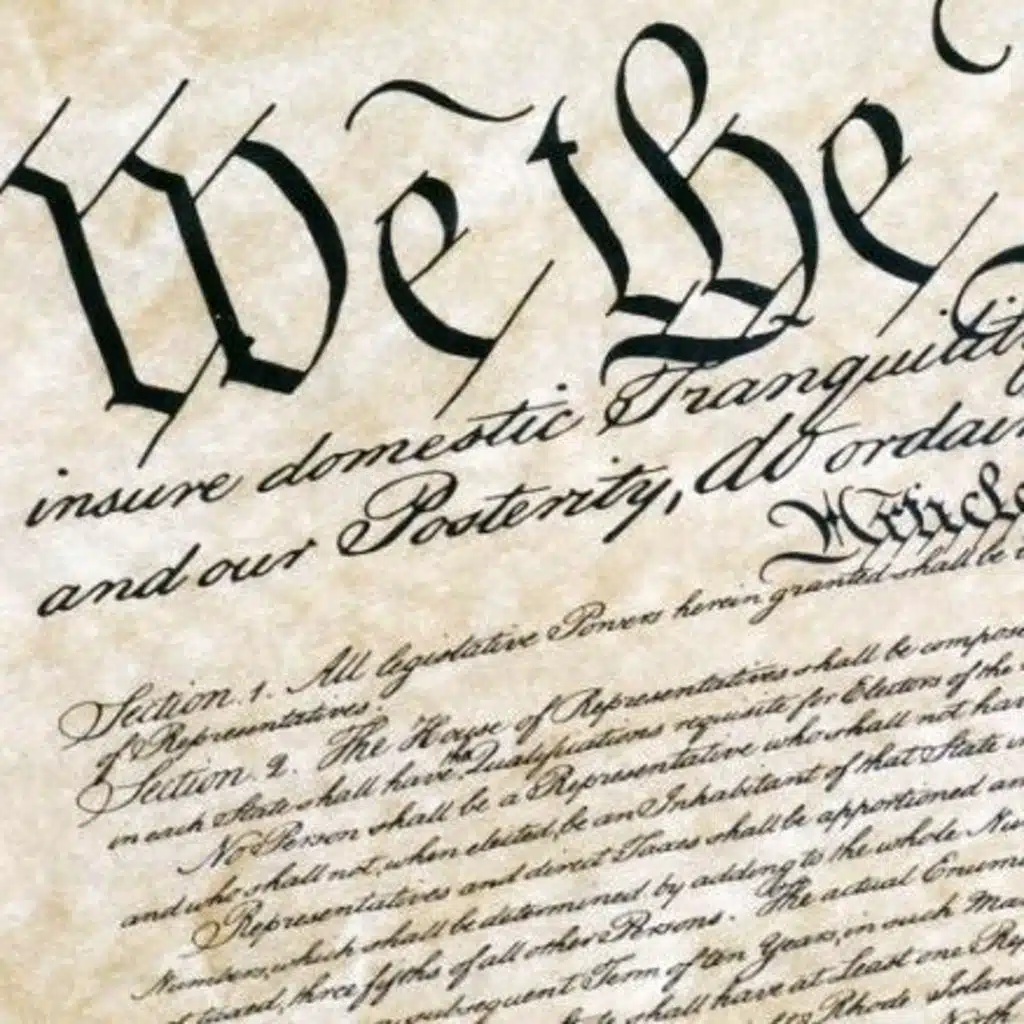 We the
insure domestic Tranquility
and our Posterity, do ordain
Article
Section. 1. All legislative Powers herein granted shall be
of Representatives.
Section. 2. The House of Representatives shall be compose
in each State shall have the Qualifications requisite for Electors of the
No Person shall be a Representative who shall not hav
and who shall not, when elected, be an Inhabitant of that State
Representatives and direct Taxes shall be apportioned
Numbers, which shall be determined by adding to the whole Nu
taxed, three fifths of all other Persons. The actual Enume
subsequent Term of ten Years, in such Ma
shall have at Least one Rep
Rhode Island